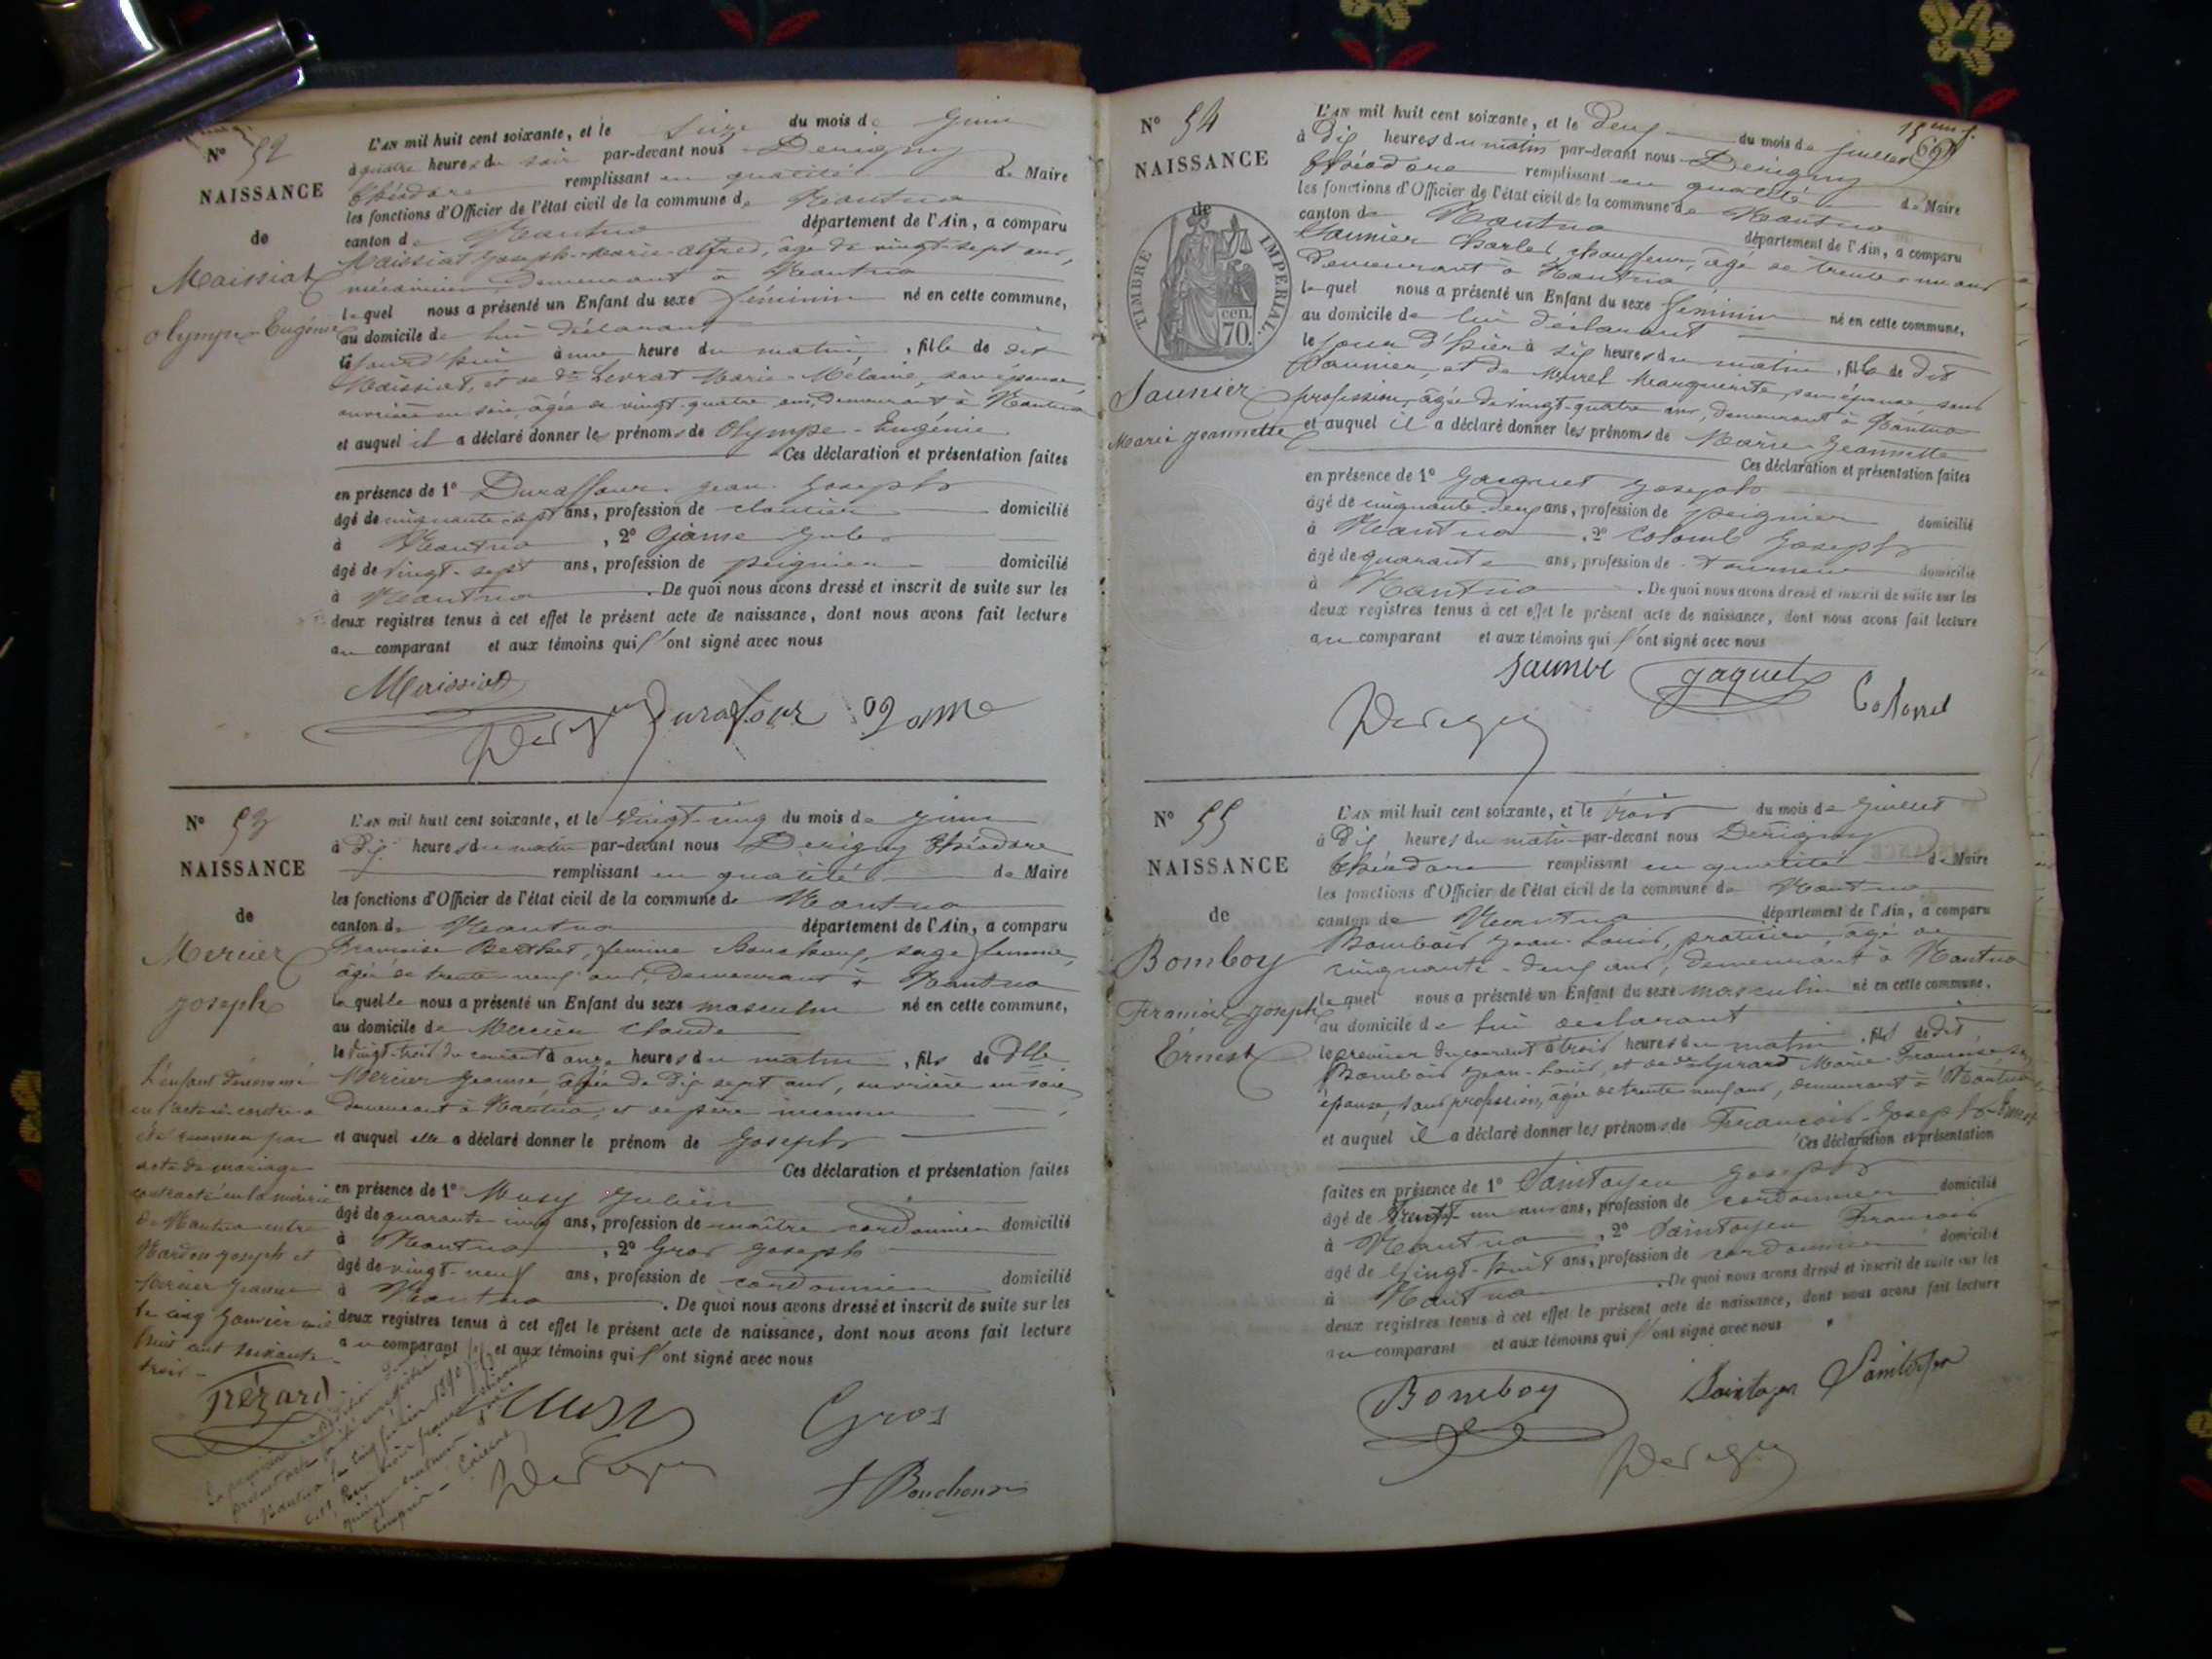 N° 52
NAISSANCE
de
Maissiat
Olympe-Eugénie
L'AN mil huit cent soixante, et le seize du mois de Juin
à quatre heures du soir par-devant nous Derigny
Théodore remplissant en qualité de Maire
les fonctions d'Officier de l'état civil de la commune de Nantua
canton de Nantua département de l'Ain, a comparu
Maissiat Joseph-Marie-Alfred, âgé de vingt-sept ans,
mécanicien demeurant à Nantua
lequel nous a présenté un Enfant du sexe féminin né en cette commune,
au domicile de lui déclarant
le jourd'hui à une heure du matin, fille de dit
Maissiat, et de de Levrat Marie-Mélanie, son épouse,
ouvrière en soie, âgée de vingt-quatre ans, demeurant à Nantua
et auquel il a déclaré donner les prénoms de Olympe-Eugénie
Ces déclaration et présentation faites
en présence de 1° Duraffour Jean-Joseph
âgé de cinquante sept ans, profession de cloutier domicilié
à Nantua, 2° Ojame Jules
âgé de vingt-sept ans, profession de peignier domicilié
à Nantua. De quoi nous avons dressé et inscrit de suite sur les
deux registres tenus à cet effet le présent acte de naissance, dont nous avons fait lecture
au comparant et aux témoins qui l'ont signé avec nous
Maissiat
Duraffour Ojame
N° 53
NAISSANCE
de
Mercier
Joseph
L'AN mil huit cent soixante, et le vingt-cinq du mois de Juin
à dix heures du matin par-devant nous Derigny Théodore
remplissant en qualité de Maire
les fonctions d'Officier de l'état civil de la commune de Nantua
canton de Nantua département de l'Ain, a comparu
Françoise Berthet, femme Bouchoux, sage femme,
âgée de trente-neuf ans, demeurant à Nantua
laquelle nous a présenté un Enfant du sexe masculin né en cette commune,
au domicile de Mercier Claude
le vingt-trois du courant à onze heures du matin, fils de Dlle
Mercier Jeanne âgée de dix sept ans, ouvrière en soie
demeurant à Nantua, et de père inconnu
et auquel elle a déclaré donner le prénom de Joseph
Ces déclaration et présentation faites
en présence de 1° Musy Julien
âgé de quarante cinq ans, profession de maître cordonnier domicilié
à Nantua, 2° Gros Joseph
âgé de vingt-neuf ans, profession de cordonnier domicilié
à Nantua. De quoi nous avons dressé et inscrit de suite sur les
deux registres tenus à cet effet le présent acte de naissance, dont nous avons fait lecture
au comparant et aux témoins qui l'ont signé avec nous
L'enfant dénommé
en l'acte ci-contre a
été reconnu par
acte de mariage
contracté en la mairie
de Nantua entre
Joseph et
Mercier Jeanne
le cinq Janvier mil
huit cent soixante-
trois-
Trézard
Musy
Gros
f Bouchoux
N° 54
NAISSANCE
de
TIMBRE IMPERIAL.
70. cen.
Saunier
Marie Jeannette
L'AN mil huit cent soixante, et le deux du mois de Juillet
à dix heures du matin par-devant nous Derigny
Théodore remplissant en qualité de Maire
les fonctions d'Officier de l'état civil de la commune de Nantua
canton de Nantua département de l'Ain, a comparu
Saunier Charles, chauffeur, âgé de trente-un ans
demeurant à Nantua
lequel nous a présenté un Enfant du sexe féminin né en cette commune,
au domicile de lui déclarant
le jour d'hier à six heures du matin, fille de dit
Saunier, et de Marguerite, son épouse, sans
profession, âgée de vingt-quatre ans, demeurant à Nantua
et auquel il a déclaré donner les prénoms de Marie-Jeannette
Ces déclaration et présentation faites
en présence de 1° Jacquet Joseph
âgé de cinquante deux ans, profession de peignier domicilié
à Nantua, 2° Colomb Joseph
âgé de quarante ans, profession de tourneur domicilié
à Nantua. De quoi nous avons dressé et inscrit de suite sur les
deux registres tenus à cet effet le présent acte de naissance, dont nous avons fait lecture
au comparant et aux témoins qui l'ont signé avec nous
Saunier Jaquet
N° 55
NAISSANCE
de
Bomboy
François Joseph
Ernest
L'AN mil huit cent soixante, et le trois du mois de Juillet
à dix heures du matin par-devant nous Derigny
Théodore remplissant en qualité de Maire
les fonctions d'Officier de l'état civil de la commune de Nantua
canton de Nantua département de l'Ain, a comparu
Jean-Louis, praticien, âgé de
cinquante-deux ans, demeurant à Nantua
lequel nous a présenté un Enfant du sexe masculin né en cette commune,
au domicile de lui déclarant
le premier du courant à trois heures du matin, fils de dit
Jean-Louis, et de de Girard Marie Françoise, son
épouse, sans profession, âgée de trente neuf ans, demeurant à Nantua
et auquel il a déclaré donner les prénoms de François-Joseph-Ernest
Ces déclaration et présentation
faites en présence de 1° Saintoyen Joseph
âgé de trente un ans, profession de cordonnier domicilié
à Nantua, 2° Saintoyen François
âgé de vingt-huit ans, profession de cordonnier domicilié
à Nantua. De quoi nous avons dressé et inscrit de suite sur les
deux registres tenus à cet effet le présent acte de naissance, dont nous avons fait lecture
au comparant et aux témoins qui l'ont signé avec nous
Bomboy Saintoyen Saintoyen